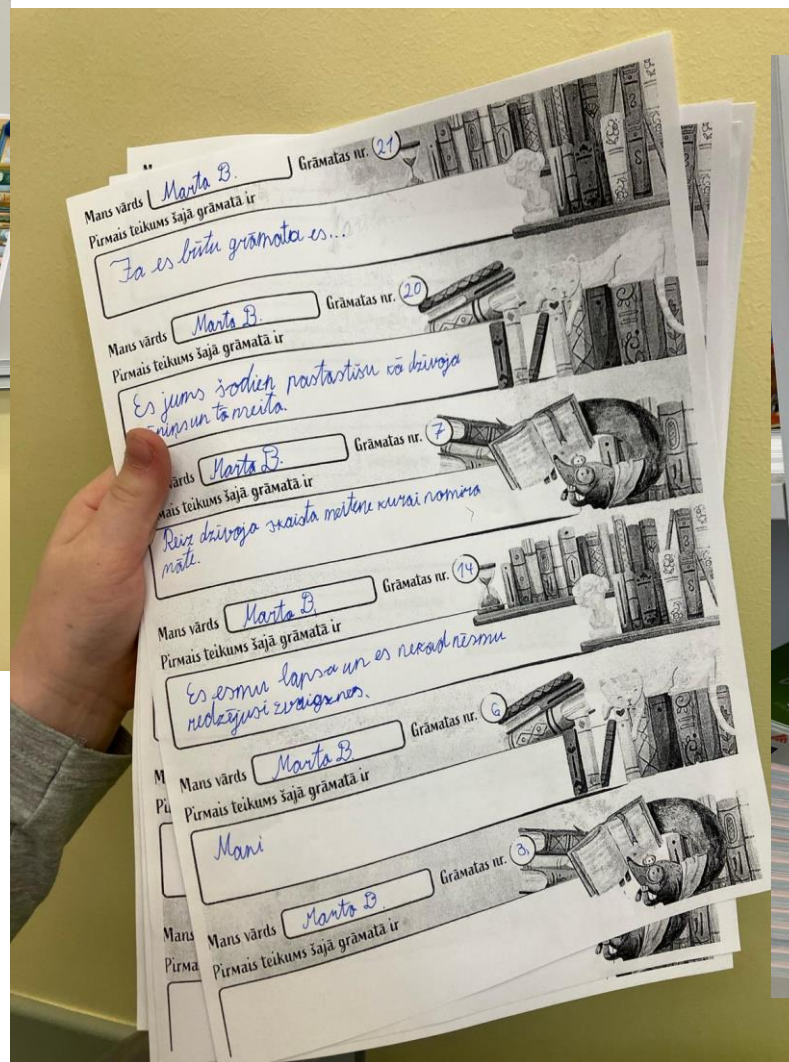 Mans vārds Marta B. Grāmatas nr. 21
Pirmais teikums šajā grāmatā ir
Ja es būtu grāmata es...
Mans vārds Marta B. Grāmatas nr. 20
Pirmais teikums šajā grāmatā ir
Es jums šodien pastastīšu kā dzīvoja
un tā meita.
vārds Marta B. Grāmatas nr. 7
mais teikums šajā grāmatā ir
Reiz dzīvoja skaista meitene kurai nomira
māte.
Mans vārds Marta B. Grāmatas nr. 14
Pirmais teikums šajā grāmatā ir
Es esmu lapsa un es nekad nēsmu
redzējusi zvaigznes.
Mans vārds Marta B Grāmatas nr. 6
Pirmais teikums šajā grāmatā ir
Mani
Mans vārds Marta B Grāmatas nr. 3.
Pirmais teikums šajā grāmatā ir
M
Pi
Mans
Pirma